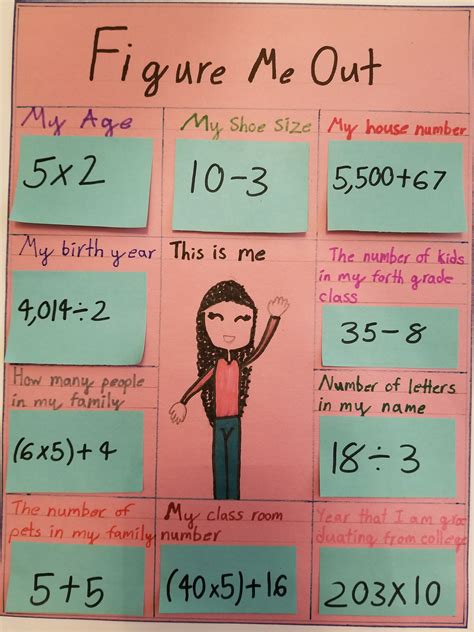 Figure Me Out
My Age
5x2
My Shoe Size
10-3
My house number
5,500+67
My birth year
4,014÷2
This is me
The number of kids
in my forth grade
class
35-8
How many people
in my family
(6x5)+4
Number of letters
in my name
18÷3
The number of
pets in my family
5+5
My class room
number
(40x5)+16
Year that I am gra
duating from college
203x10